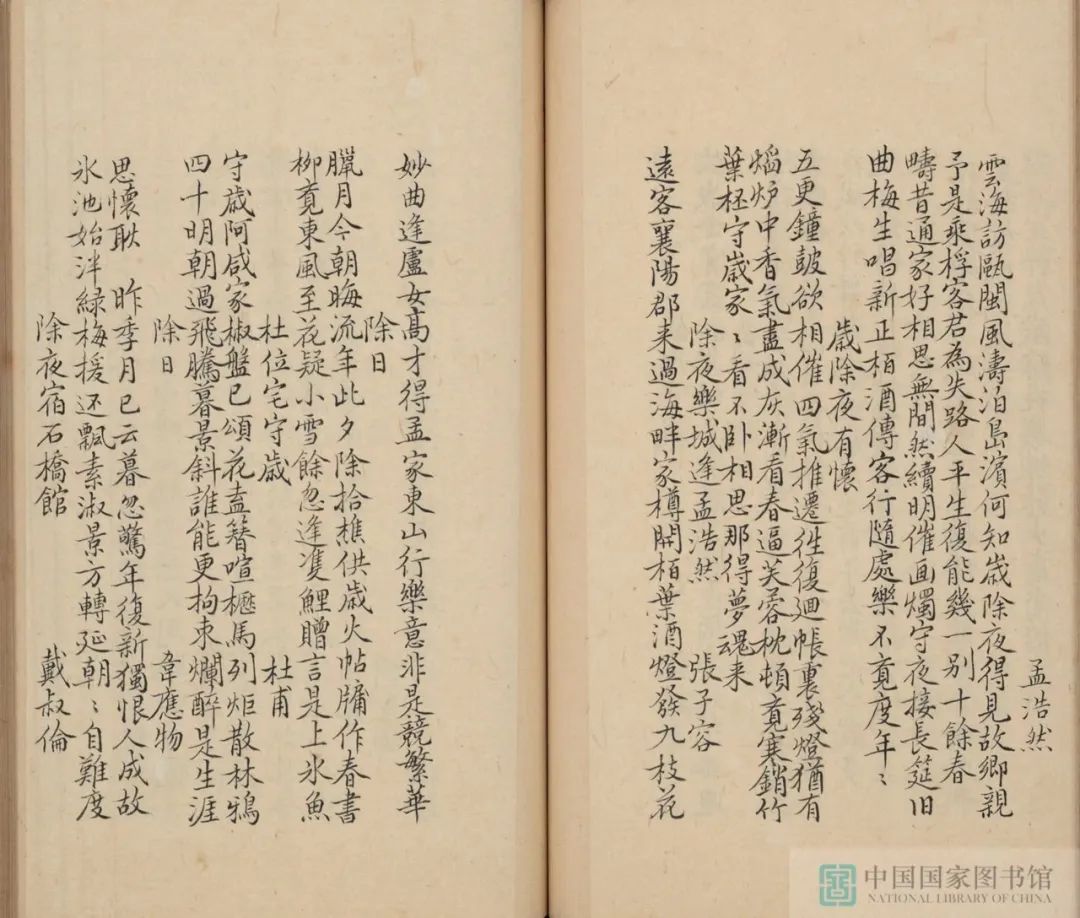 孟浩然
雲海訪甌閩風濤泊島濱何知歲除夜得見故鄉親
予是乘桴客君為失路人平生復能幾一別十餘春
疇昔通家好相思無間然續明催画燭守夜接長筵旧
曲梅生唱新正栢酒傳客行隨處樂不竟度年〻
歲除夜有懷
五更鐘皷欲相催四氣推遷徃復廻帳裏殘燈猶有
熖炉中香氣盡成灰漸看春逼芙蓉枕頓竟寒銷竹
葉杯守嵗家〻看不卧相思那得夢魂来
除夜樂城逢孟浩然 張子容
遠客襄陽郡来過海畔家樽開栢葉酒燈發九枝花
妙曲逢盧女高才得孟家東山行樂意非是競繁華
除日
臘月今朝晦流年此夕除拾樵供歳火帖牖作春書
柳竟東風至花疑小雪餘忽逢雙鯉贈言是上氷魚
杜位宅守歳 杜甫
守歳阿咸家椒盤已頌花盍簪喧櫪馬列炬散林鴉
四十明朝過飛騰暮景斜誰能更拘束爛醉是生涯
除日 韋應物
思懷耿 昨季月已云暮忽驚年復新獨恨人成故
氷池始泮緑梅援还飄素淑景方轉延朝〻自難度
除夜宿石橋館 戴叔倫
中国国家图书馆
NATIONAL LIBRARY OF CHINA